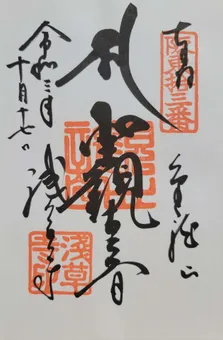 奉拝
坂東拾三番
金龍山
聖観世音
令和三年
十月十七日
浅草寺
淺草寺印